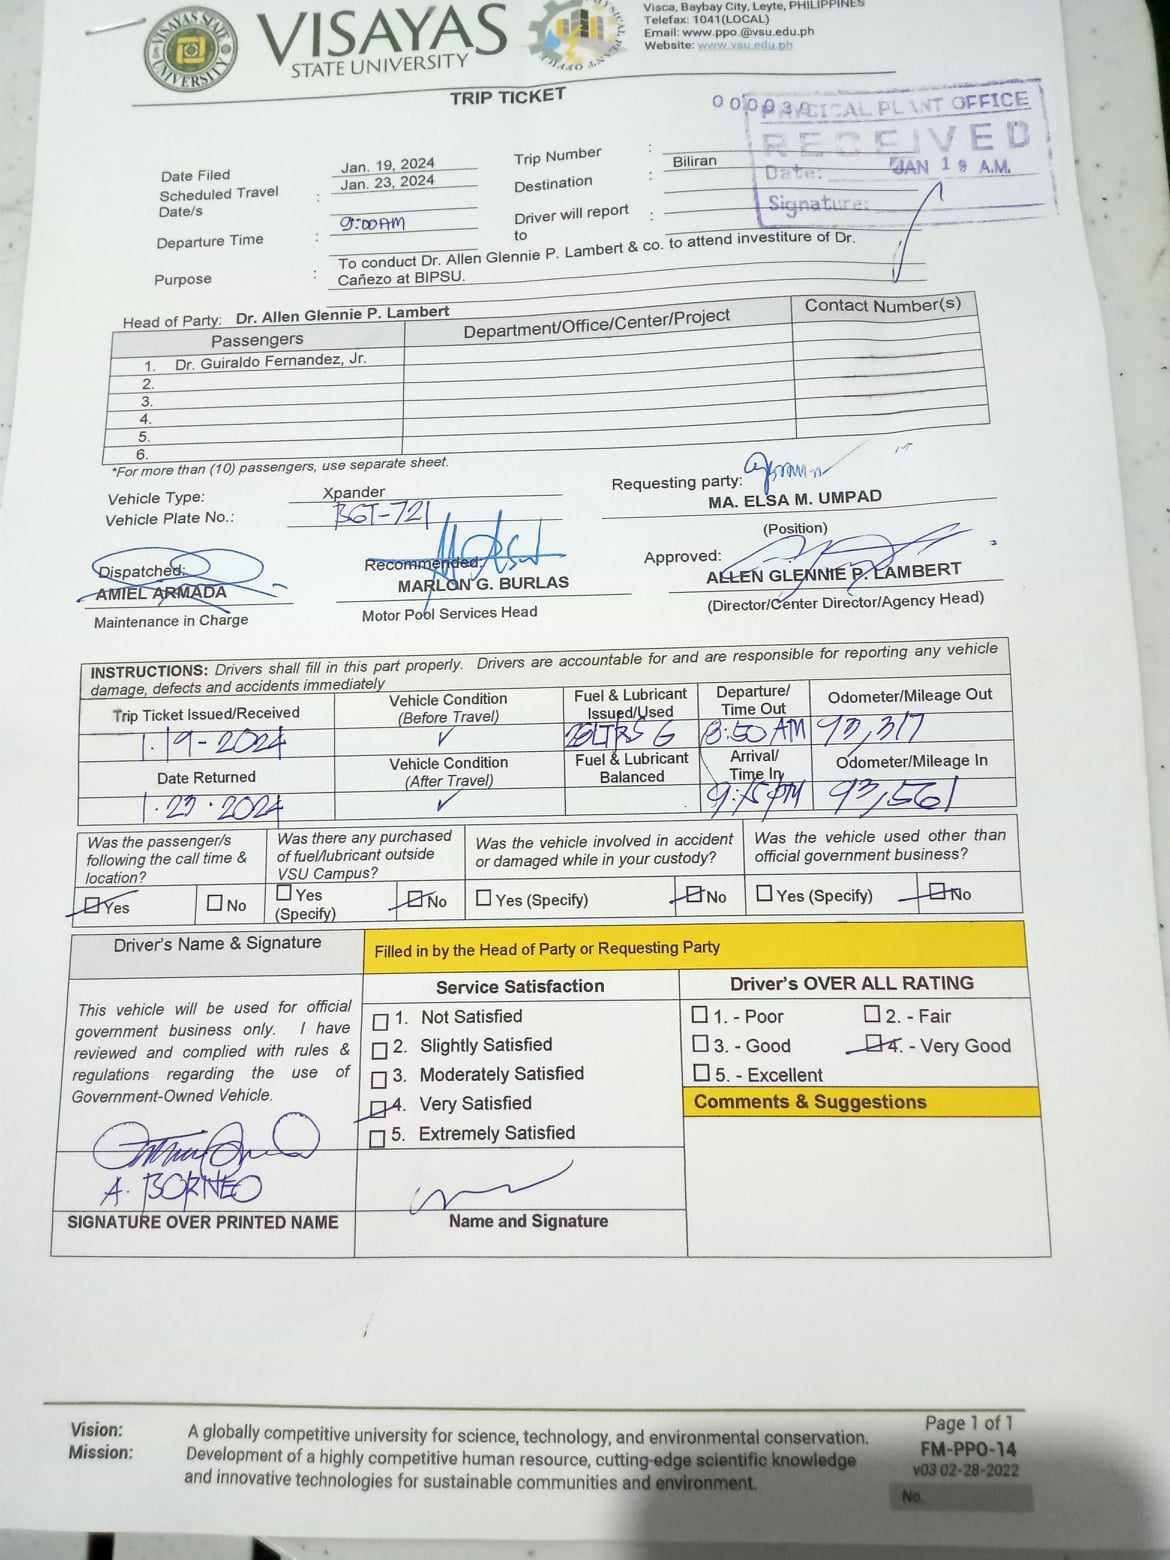 VISAYAS STATE UNIVERSITY
VISAYAS
STATE UNIVERSITY
Visca, Baybay City, Leyte, PHILIPPINES
Telefax: 1041(LOCAL)
Email: www.ppo.@vsu.edu.ph
Website: www.vsu.edu.ph
TRIP TICKET
PHYSICAL PLANT OFFICE
RECEIVED
Date: JAN 19 A.M.
Signature:
Date Filed Jan. 19, 2024
Trip Number :
Scheduled Travel Date/s : Jan. 23, 2024
Destination : Biliran
Departure Time : 9:00AM
Driver will report to :
Purpose : To conduct Dr. Allen Glennie P. Lambert & co. to attend investiture of Dr.
Cañezo at BIPSU.
Head of Party: Dr. Allen Glennie P. Lambert
Passengers Department/Office/Center/Project Contact Number(s)
1. Dr. Guiraldo Fernandez, Jr.
2.
3.
4.
5.
6.
*For more than (10) passengers, use separate sheet.
Vehicle Type: Xpander
Vehicle Plate No.: BGT-721
Requesting party:
MA. ELSA M. UMPAD
(Position)
Dispatched:
AMIEL ARMADA
Maintenance in Charge
Recommended:
MARLON G. BURLAS
Motor Pool Services Head
Approved:
ALLEN GLENNIE P. LAMBERT
(Director/Center Director/Agency Head)
INSTRUCTIONS: Drivers shall fill in this part properly. Drivers are accountable for and are responsible for reporting any vehicle
damage, defects and accidents immediately
Trip Ticket Issued/Received
Vehicle Condition
(Before Travel)
Fuel & Lubricant
Issued/Used
Departure/
Time Out
Odometer/Mileage Out
1.19-2024 ✓ 8:50 AM 93,317
Date Returned
Vehicle Condition
(After Travel)
Fuel & Lubricant
Balanced
Arrival/
Time In
Odometer/Mileage In
1.23.2024 ✓ 9:15 PM 93,561
Was the passenger/s
following the call time &
location?
Was there any purchased
of fuel/lubricant outside
VSU Campus?
Was the vehicle involved in accident
or damaged while in your custody?
Was the vehicle used other than
official government business?
Yes No
Yes
(Specify)
No
Yes (Specify) No
Yes (Specify) No
Driver's Name & Signature
Filled in by the Head of Party or Requesting Party
This vehicle will be used for official
government business only. I have
reviewed and complied with rules &
regulations regarding the use of
Government-Owned Vehicle.
A. BORNEO
SIGNATURE OVER PRINTED NAME
Service Satisfaction
1. Not Satisfied
2. Slightly Satisfied
3. Moderately Satisfied
4. Very Satisfied
5. Extremely Satisfied
Name and Signature
Driver's OVER ALL RATING
1. - Poor 2. - Fair
3. - Good 4. - Very Good
5. - Excellent
Comments & Suggestions
Vision: A globally competitive university for science, technology, and environmental conservation.
Mission: Development of a highly competitive human resource, cutting-edge scientific knowledge
and innovative technologies for sustainable communities and environment.
Page 1 of 1
FM-PPO-14
v03 02-28-2022
No.